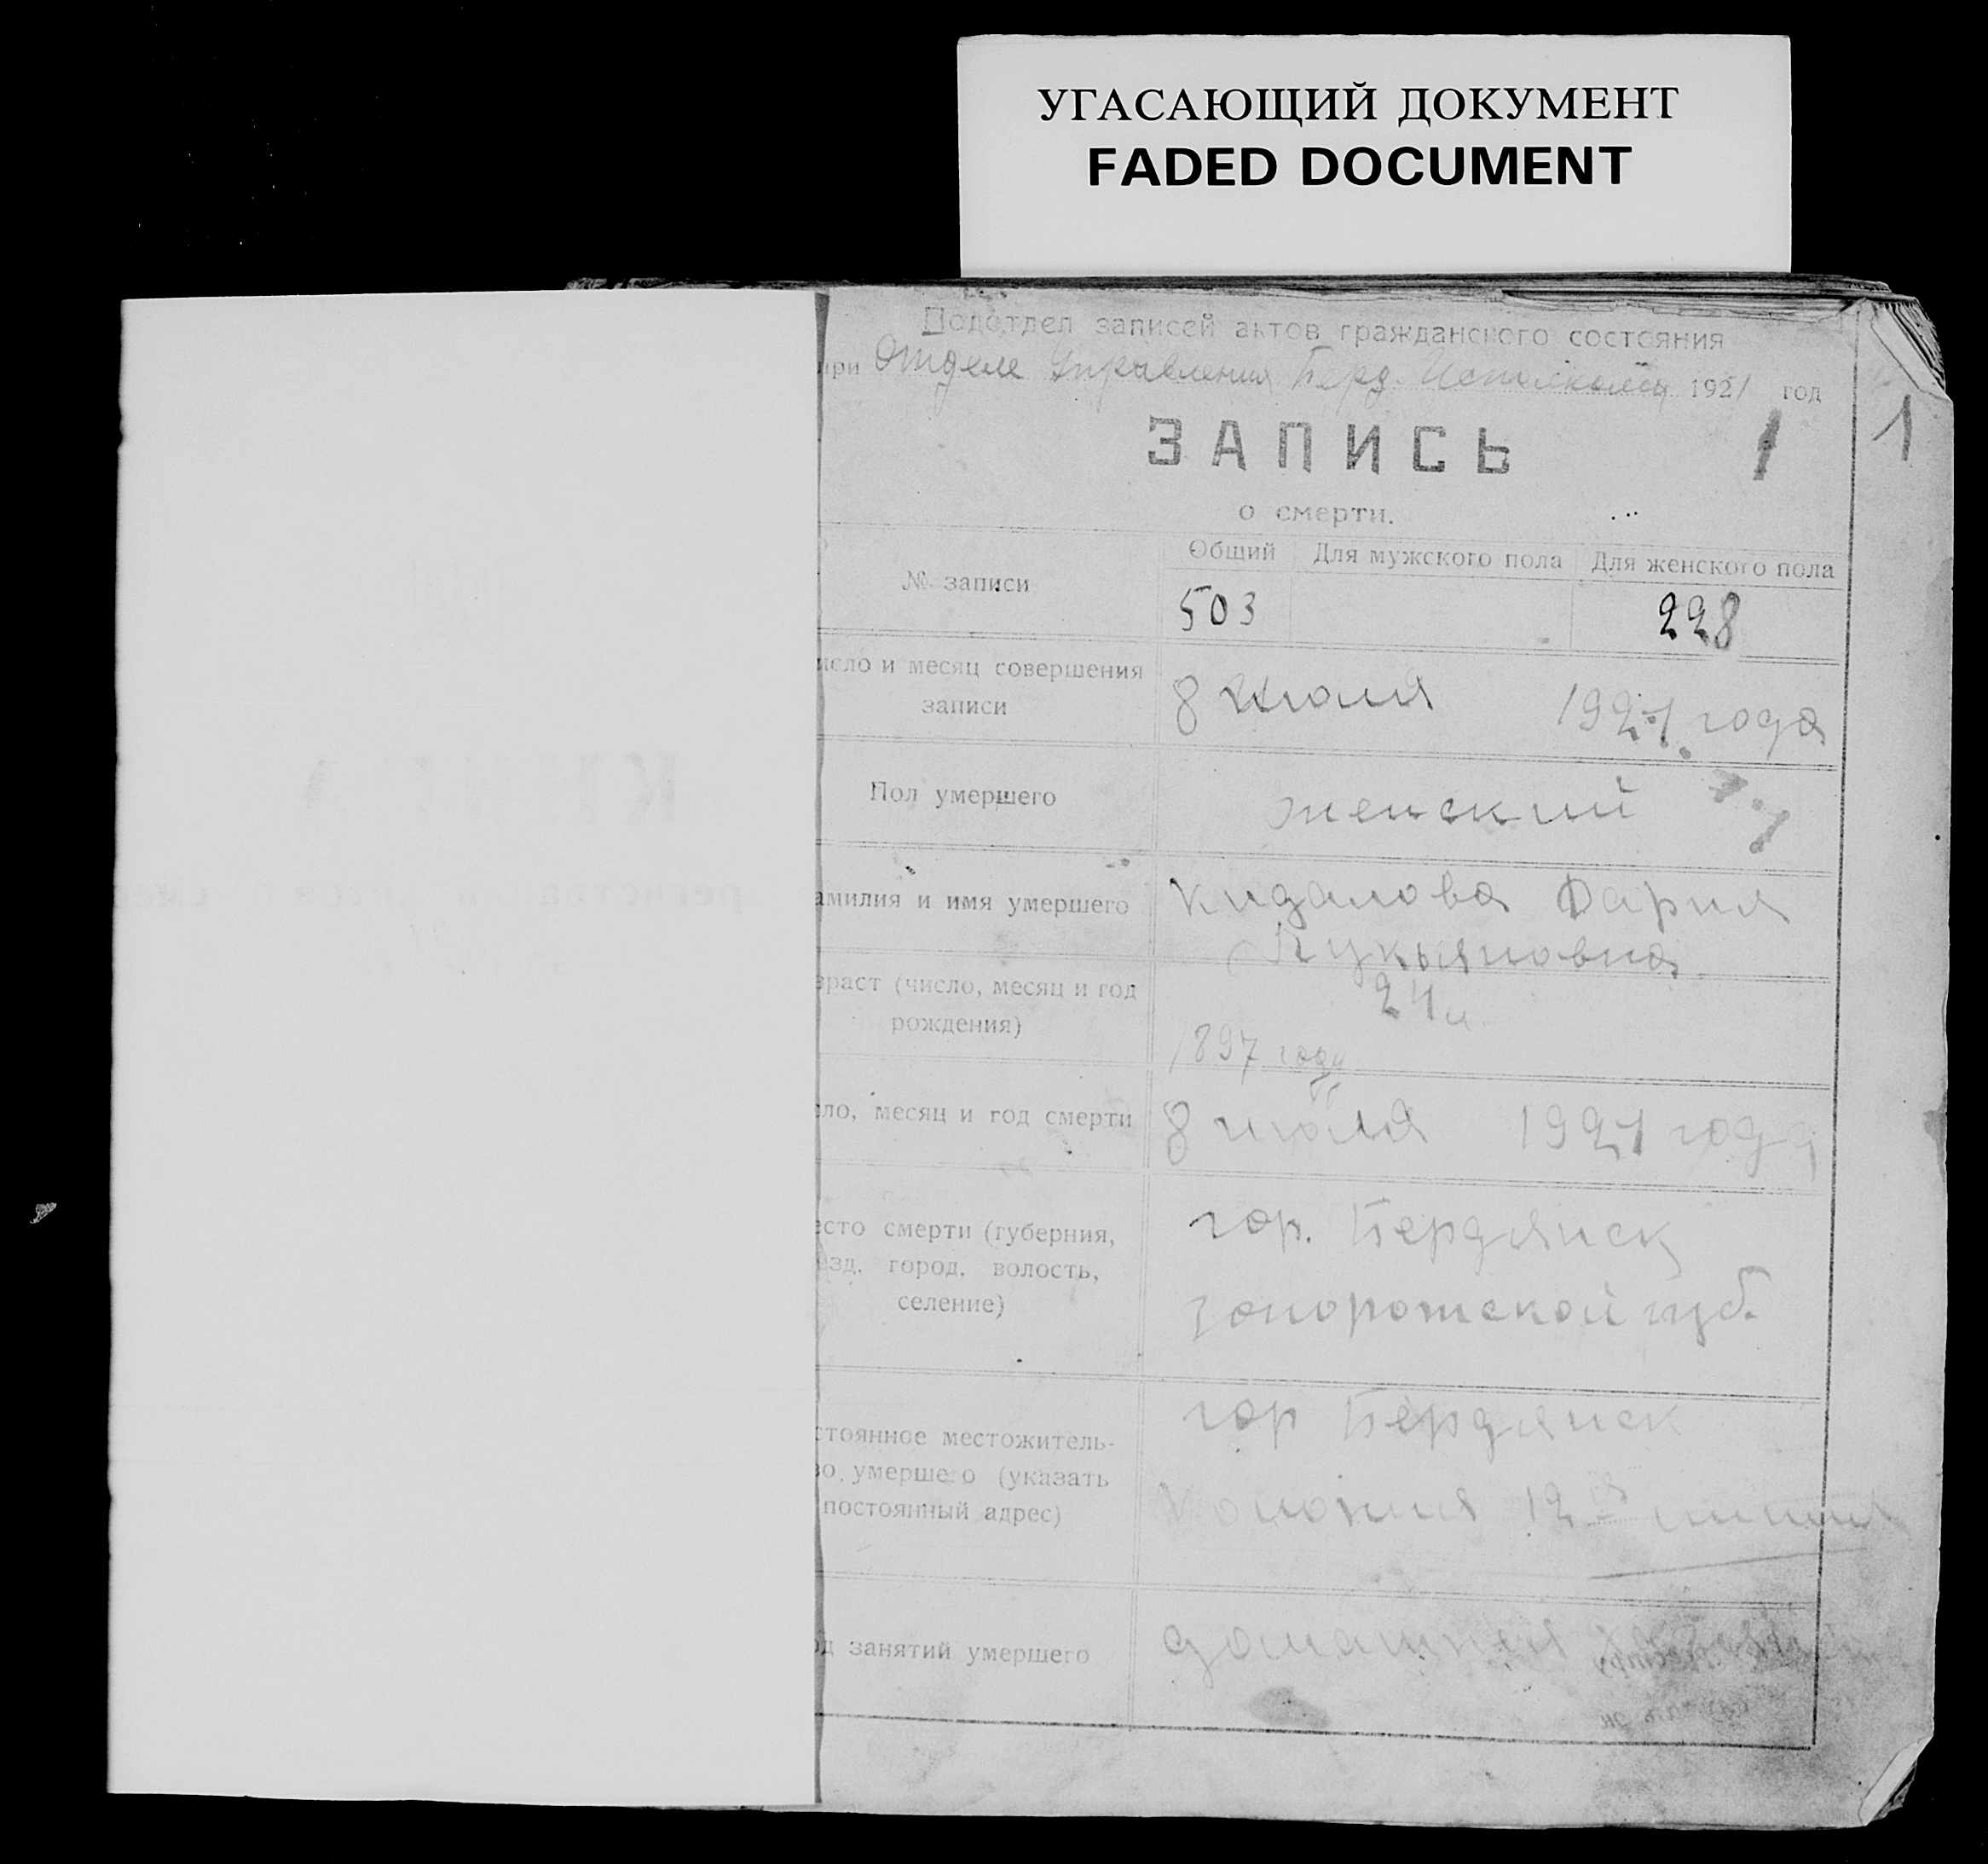 УГАСАЮЩИЙ ДОКУМЕНТ
FADED DOCUMENT
Подотдел записей актов гражданского состояния
при Отделе Управления Берд. Исполкома 1921 год
ЗАПИСЬ
1
1
о смерти.
№ записи
Общий Для мужского пола Для женского пола
503 228
исло и месяц совершения
записи
8 Июля 1921 года
Пол умершего
женский
амилия и имя умершего
Кидалова Дария
Лукьяновна
зраст (число, месяц и год
рождения)
24 л
1897 году
ло, месяц и год смерти
8 июля 1921 года
есто смерти (губерния,
езд, город, волость,
селение)
гор. Бердянск
Запорожской губ.
стоянное местожитель-
во умершего (указать
постоянный адрес)
гор Бердянск
Колония 12 линия
од занятий умершего
домашняя